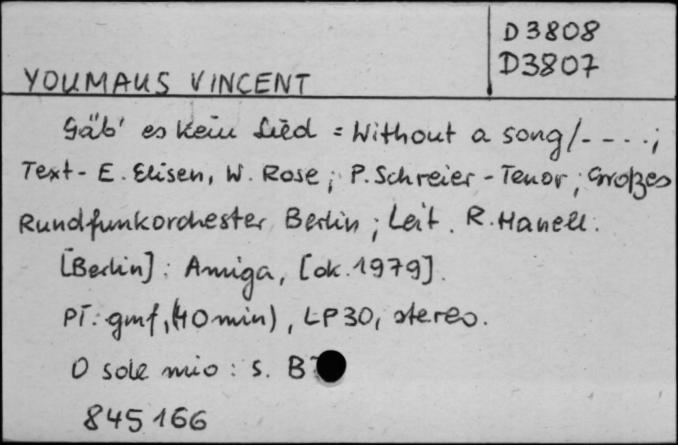 D3808
D3807
YOUMAUS VINCENT
Gäb' es kein Lied = Without a song/----;
Text - E. Elisen, W. Rose; P. Schreier - Tenor; Großes
Rundfunkorchester Berlin; Leit. R. Hanell.
[Berlin]: Amiga, [ok. 1979].
PŁ: gmf, (40 min), LP30, stereo.
O sole mio: s. B
845166